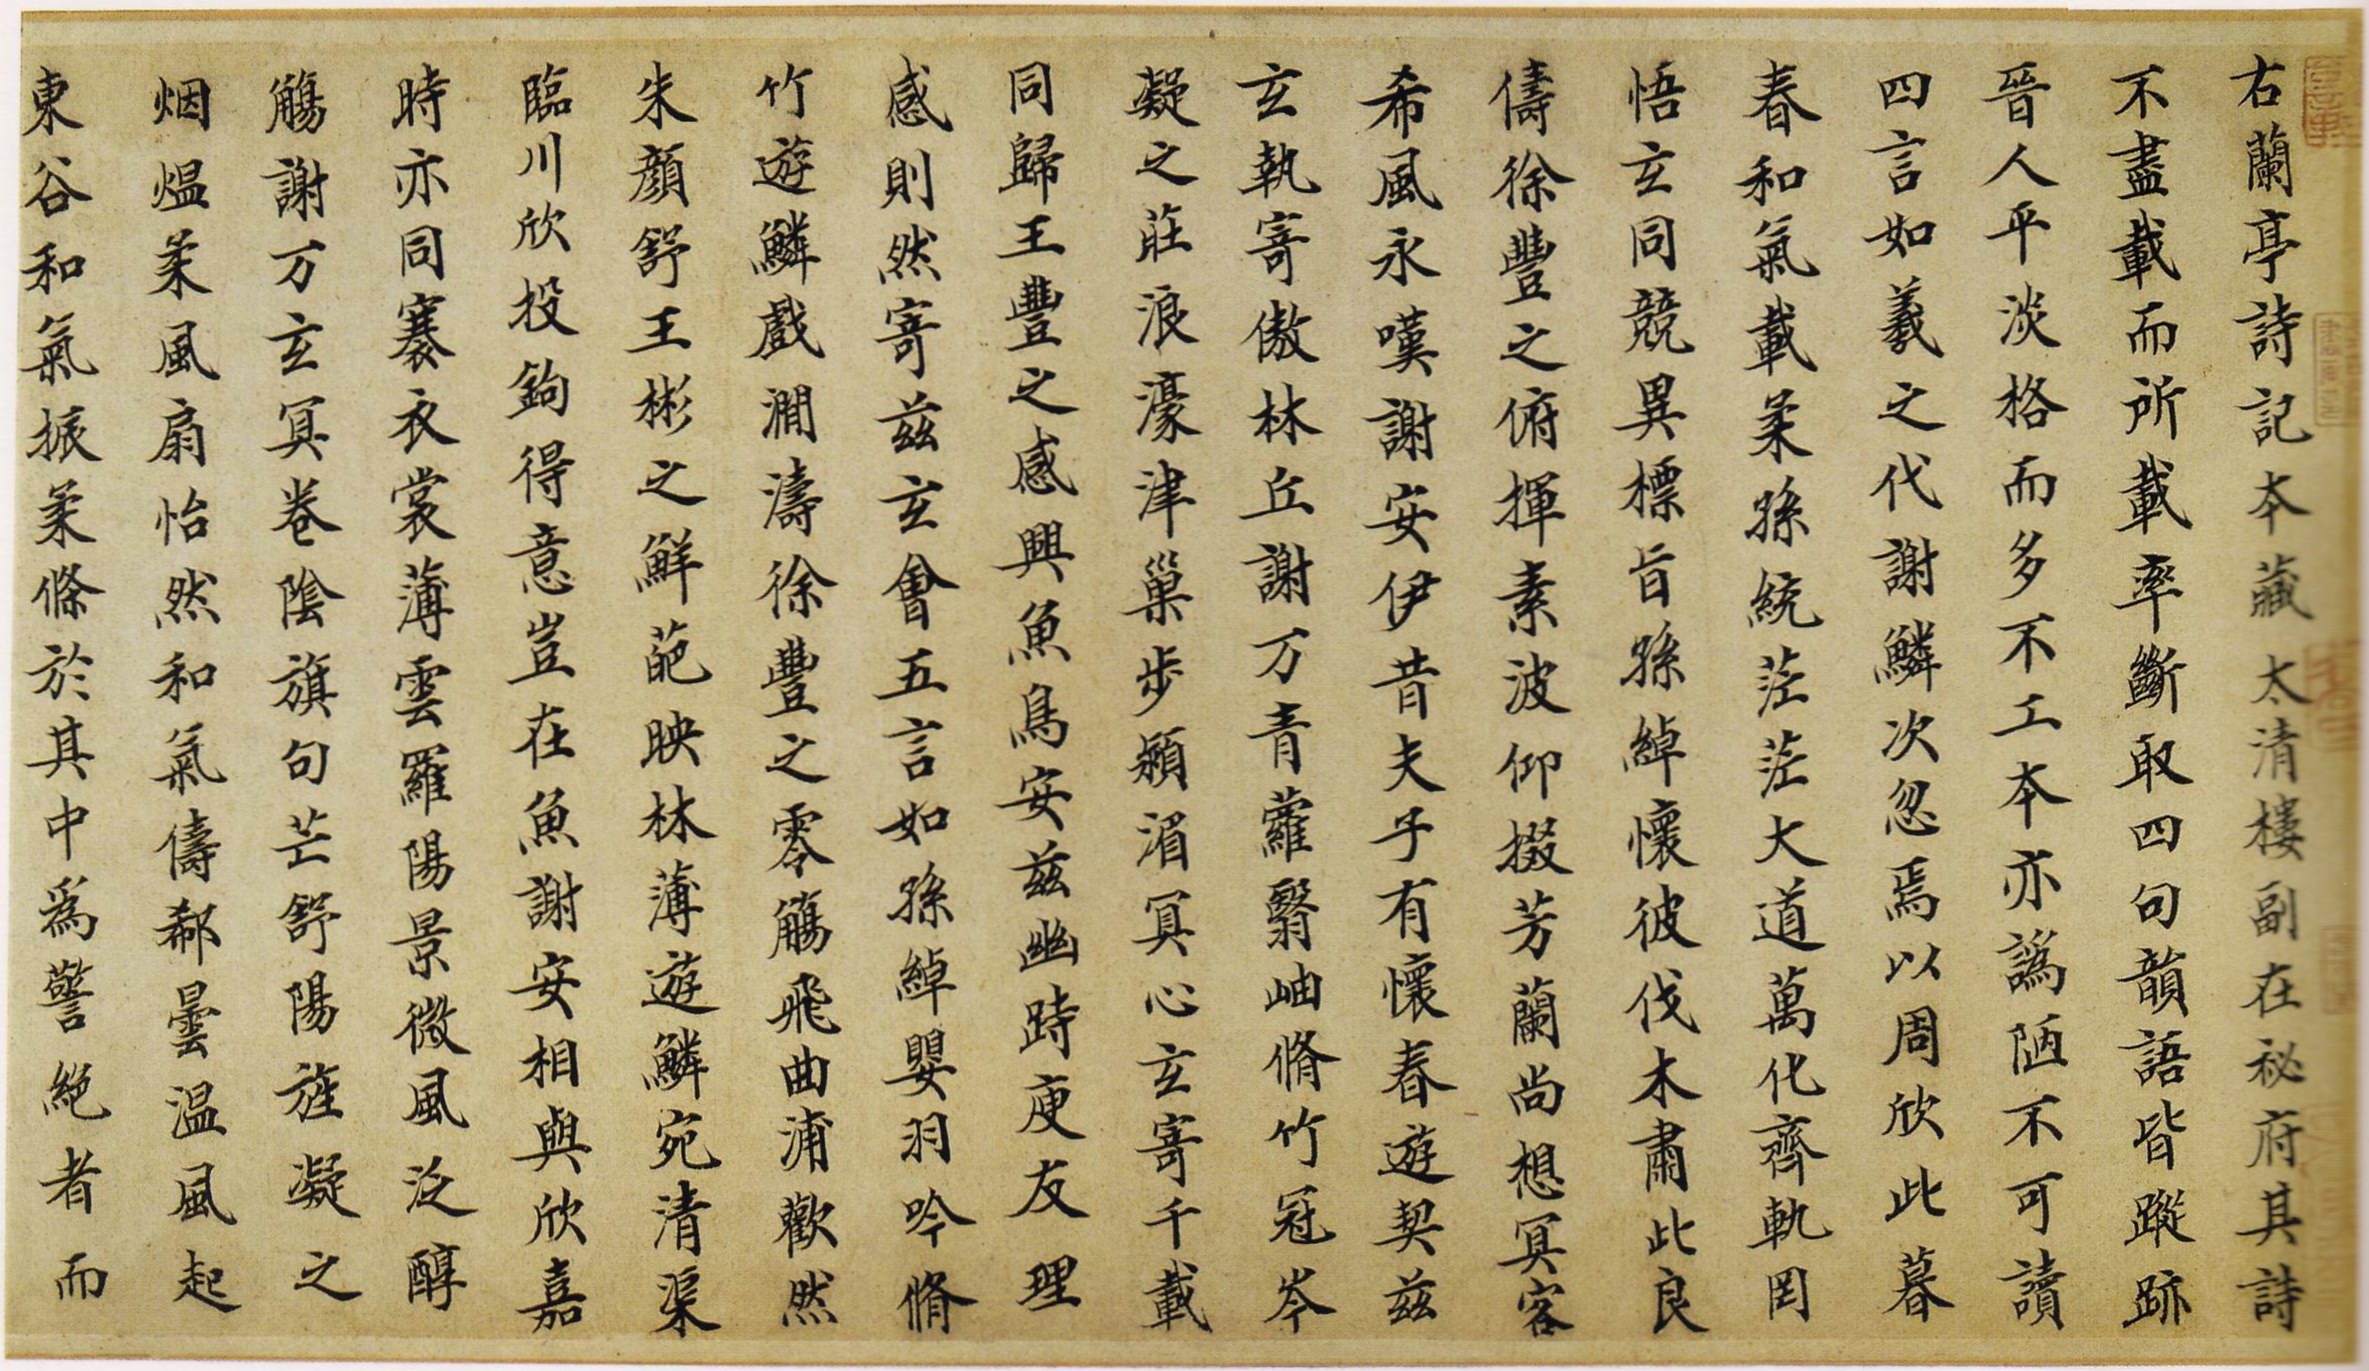 右蘭亭詩記本藏太清樓副在祕府其詩
不盡載而所載率斷取四句韻語皆蹤跡
晉人平淡格而多不工本亦譌陋不可讀
四言如羲之代謝鱗次忽焉以周欣此暮
春和氣載柔孫統茫茫大道萬化齊軌罔
悟玄同競異標旨孫綽懷彼伐木肅此良
儔徐豐之俯揮素波仰掇芳蘭尚想冥客
希風永嘆謝安伊昔夫子有懷春遊契茲
玄執寄傲林丘謝万青蘿翳岫脩竹冠岑
凝之莊浪濠津巢步潁湄冥心玄寄千載
同歸王豐之感興魚鳥安茲幽時庾友理
感則然寄茲玄會五言如孫綽嬰羽吟脩
竹遊鱗戲澗濤徐豐之零觴飛曲浦歡然
朱顏舒王彬之鮮葩映林薄遊鱗宛清渠
臨川欣投鉤得意豈在魚謝安相與欣嘉
時亦同褰衣裳薄雲羅陽景微風泛醇
觴謝万玄冥卷陰旗句芒舒陽旌凝之
烟熅柔風扇怡然和氣儔郗曇温風起
東谷和氣振柔條於其中爲警絕者而